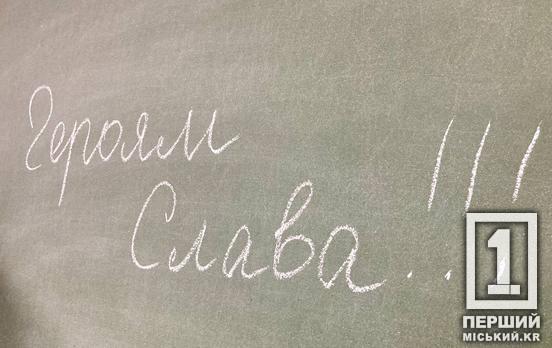 Героям
Слава..!!!
1
ПЕРШИЙ
МІСЬКИЙ.KR